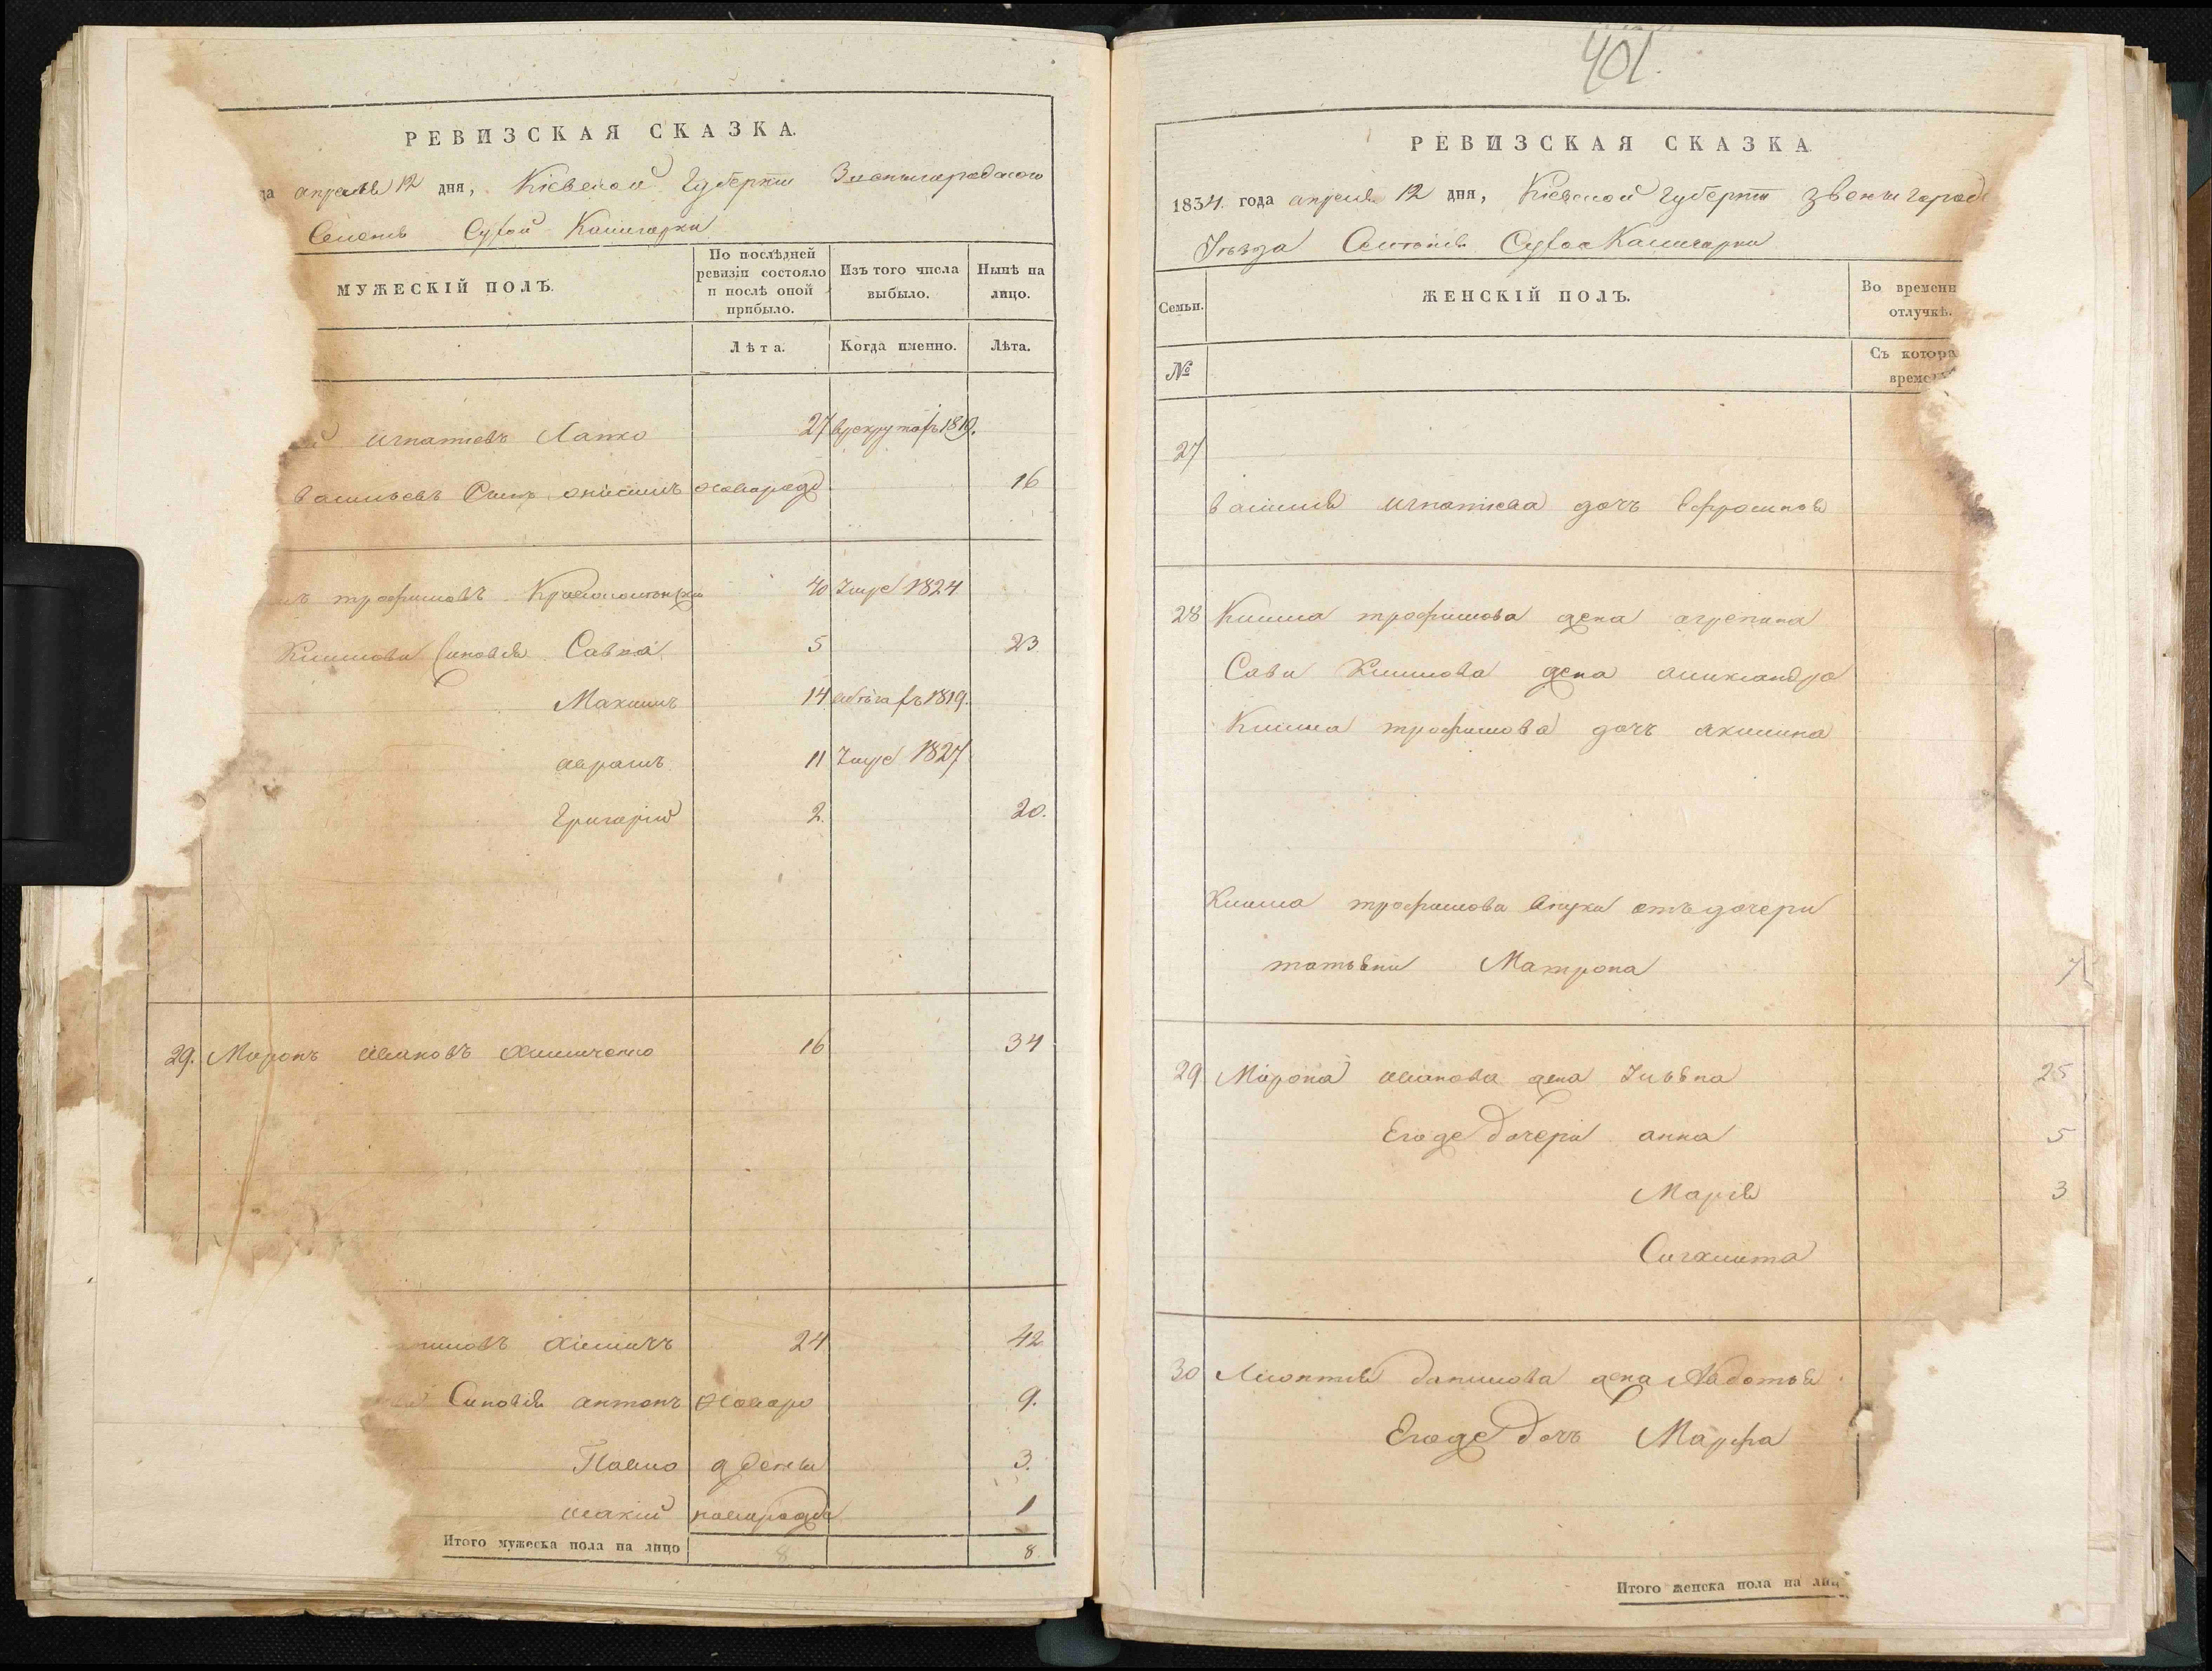 РЕВИЗСКАЯ СКАЗКА.
апреля 12 дня, Кіевской Губерніи Звенигородского
Селенія Сухой Калигорки
МУЖЕСКІЙ ПОЛЪ.
По послѣдней ревизіи состояло и послѣ оной прибыло.
Изъ того числа выбыло.
Нынѣ на лицо.
Лѣта.
Когда именно.
Лѣта.
игнатіевъ Лапко 27 врекрутахъ 1819.
васильевъ Синъ онисимъ новорожд 16
трофимовъ 40 Умре 1824
Климова Синовія Савка 5 23
Максимъ 14 вбѣгахъ 1819.
аврамъ 11 Умре 1827
Григорій 2. 20.
29. Миронъ ивановъ Химиченко 16 34
Химичъ 24 42
Синовія антонъ Новоро 9.
Павло жденны 3.
исакій новорожде 1
Итого мужеска пола на лицо 8 8.
401.
РЕВИЗСКАЯ СКАЗКА
1834. года апреля 12 дня, Кіевской Губерніи Звенигород
Уѣзда Селенія Сухой Калигорки
Семьи.
ЖЕНСКІЙ ПОЛЪ.
Во временн
отлучкѣ.
№
Съ котора
време
27
василія игнатіева дочъ Ефросинія
28 Клима трофимова жена агрепина
Сави Климова жена аликсандра
Клима трофимова дочъ акилина
Клима трофимова внука отъ дочери
татьяни Матрона 7
29 Мирона иванова жена Ульяна 25
Егоже дочери анна 5
Марія 3
30 Леонтія данилова жена Авдотья
Егоже дочъ Марфа
Итого женска пола на лиц